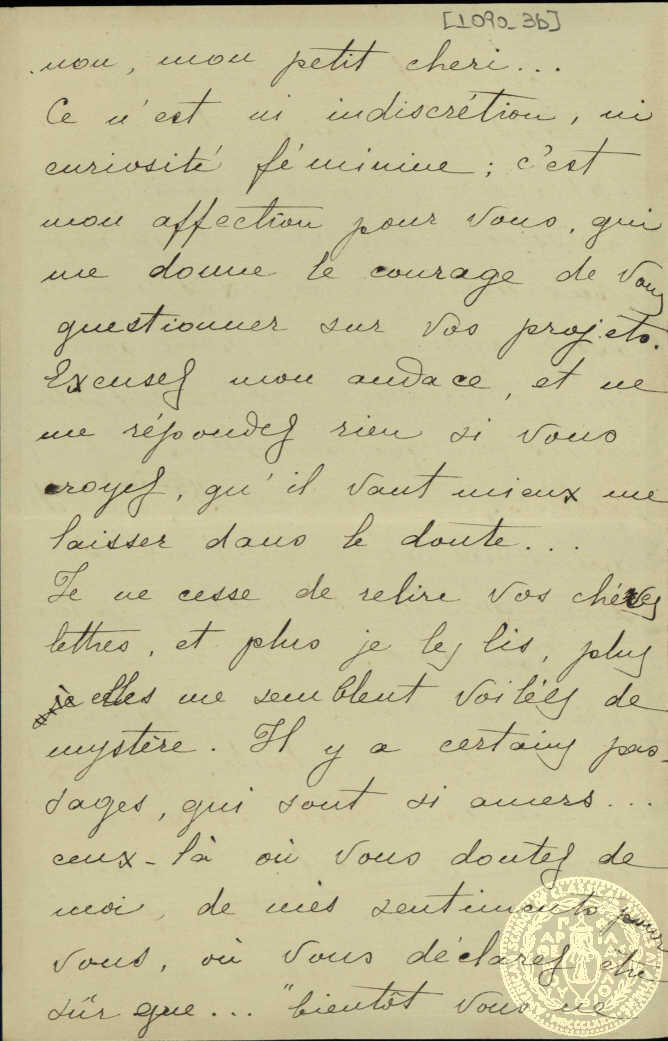 [1090_3b]
non, mon petit cheri...
Ce n'est ni indiscrétion, ni
curiosité féminine ; c'est
mon affection pour vous, qui
me donne le courage de vous
questionner sur vos projets.
Excusez mon audace, et ne
me répondez rien si vous
croyez, qu'il vaut mieux me
laisser dans le doute...
Je ne cesse de relire vos chères
lettres, et plus je les lis, plus
elles me semblent voilées de
mystère. Il y a certains pas-
sages, qui sont si amers...
ceux-là où vous doutez de
moi, de mes sentiments pour
vous, où vous déclarez être
sûr que... "bientôt vous ne